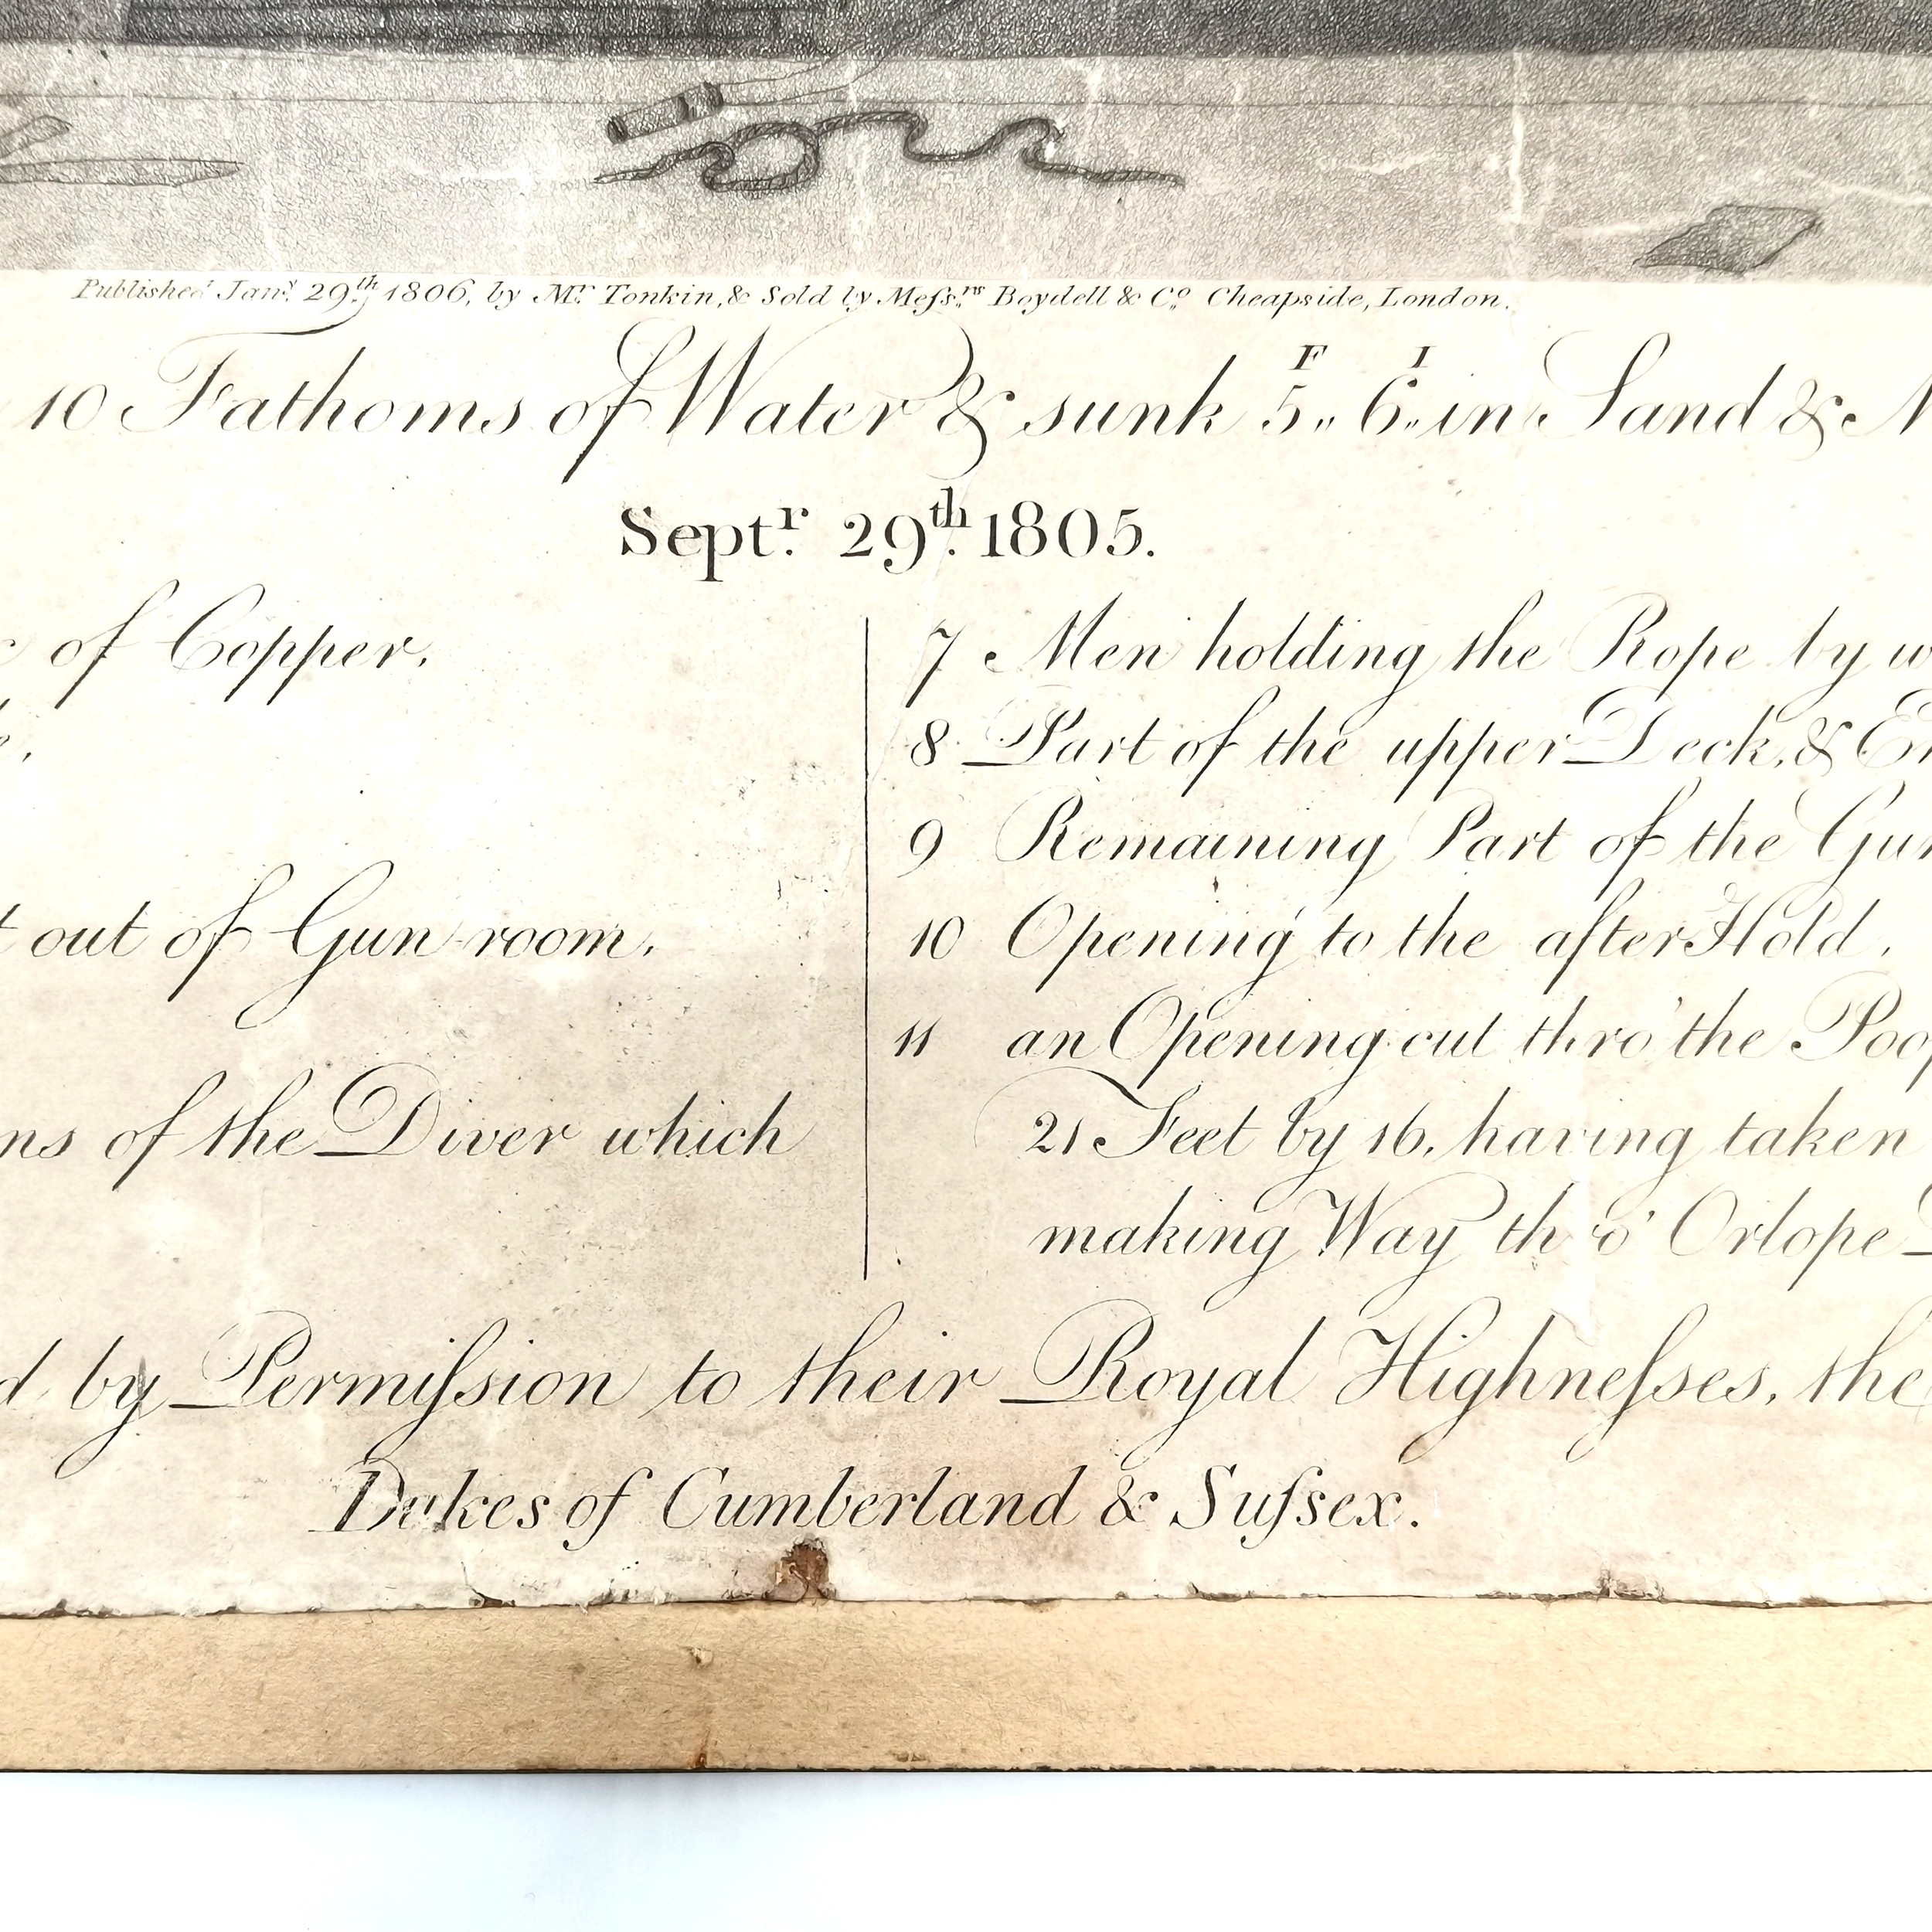 Published Jany. 29th, 1806, by Mr. Tonkin, & Sold by Meſsrs. Boydell & Co. Cheapside, London.
10 Fathoms of Water & sunk 5F,, 6I,, in Sand & M
Septr. 29th. 1805.
of Copper.
t out of Gun room.
ns of the Diver which
7 Men holding the Rope by w
8 Part of the upper Deck, & En
9 Remaining Part of the Gun
10 Opening to the after Hold.
11 an Opening cut thro' the Poop
21 Feet by 16. having taken
making Way thro' Orlope
d by Permiſsion to their Royal Highneſses, the
Dukes of Cumberland & Suſsex.